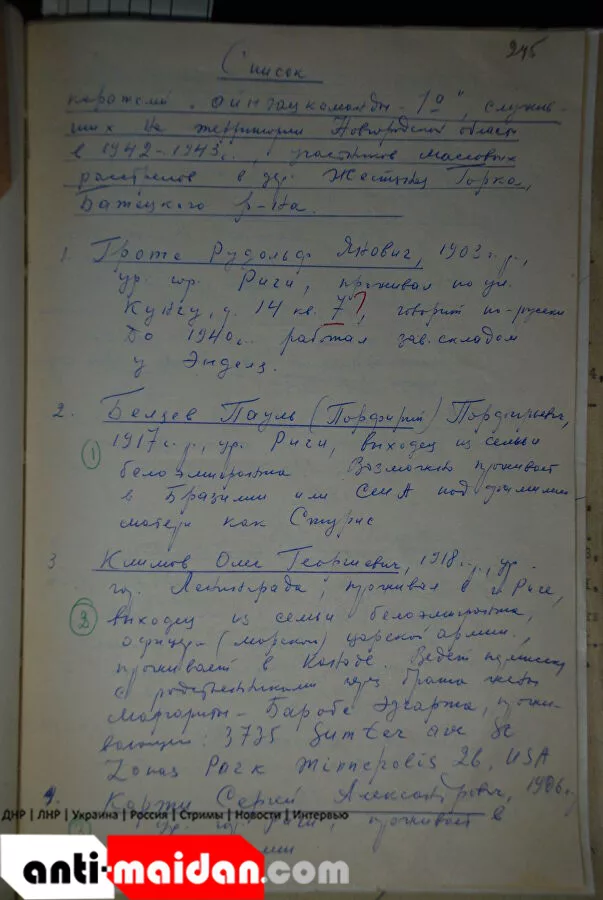 245
Список
карателей „айнзацкоманды - 1а", служив-
ших на территории Новгородской области
в 1942-1943 г., участников массовых
расстрелов в дер. Жестяная Горка,
Батецкого р-на.
1. Гроте Рудольф Янович, 1903 г.р.,
ур. гор. Риги, проживал по ул.
д. 14 кв. 7, говорит по-русски
До 1940 г. работал зав. складом
у
2. Беляев Пауль (Порфирий) Порфирьевич,
1917 г.р., ур. Риги, выходец из семьи
1
белоэмигранта. Возможно проживает
в Бразилии или США под фамилией
матери как Стурис
3 Климов Олег Георгиевич, 1918 г.р., ур.
гор. Ленинграда, проживал в г. Риге,
2
выходец из семьи белоэмигранта,
офицера (морской) царской армии,
проживает в Канаде. Ведет переписку
с родственниками через брата жены
Маргариты - Эдгарта, прожи-
вающий: 3735 Sumter ave Se
Park Minnepolis 26, USA
4. Сергей Александрович, 1906 г.
ур. гор. Риги, проживает в
ДНР | ЛНР | Украина | Россия | Стримы | Новости | Интервью
anti-maidan.com